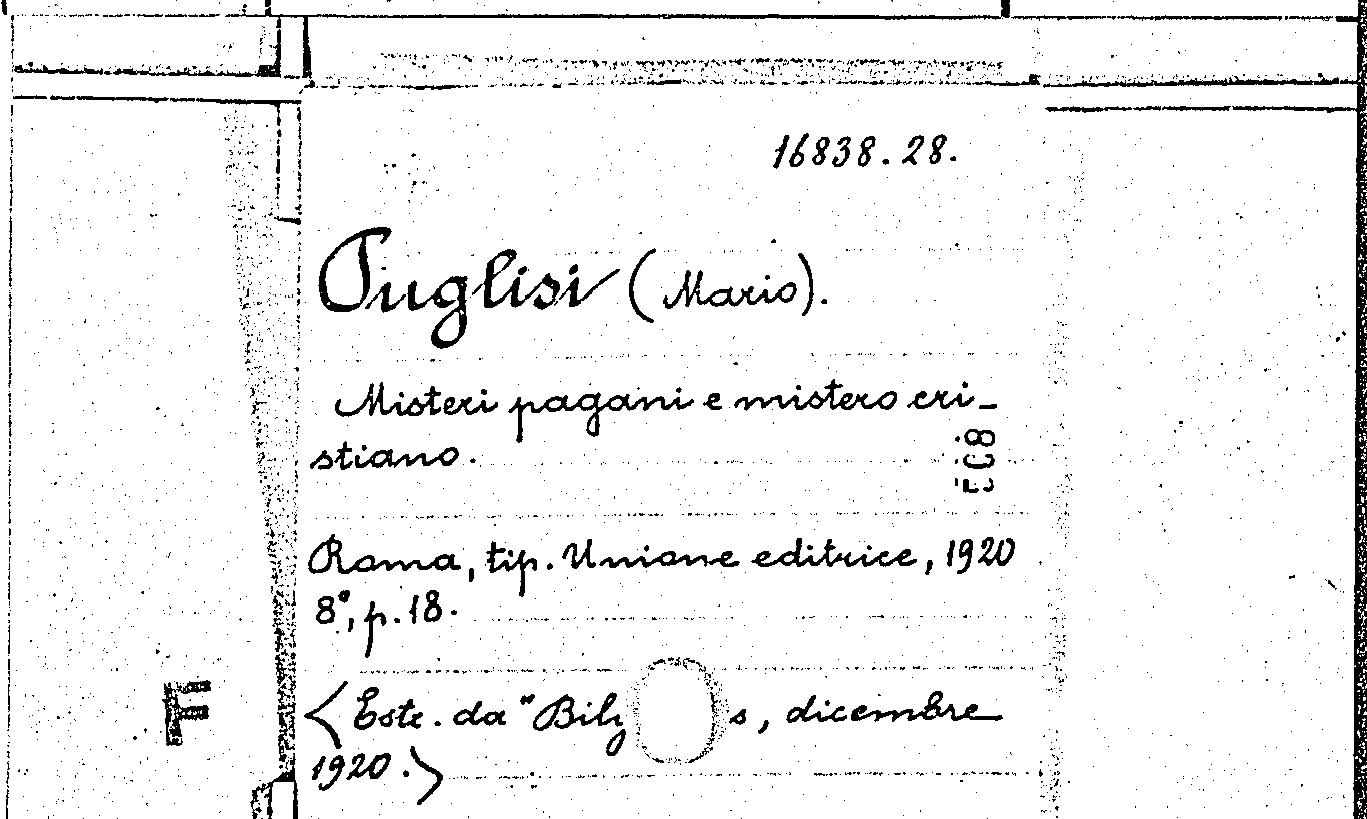 16838.28.
Puglisi (Mario).
Misteri pagani e mistero cri-
stiano.
Roma, tip. Unione editrice, 1920
8°, p. 18.
<Estr. da "Bily s, dicembre
1920.>
F